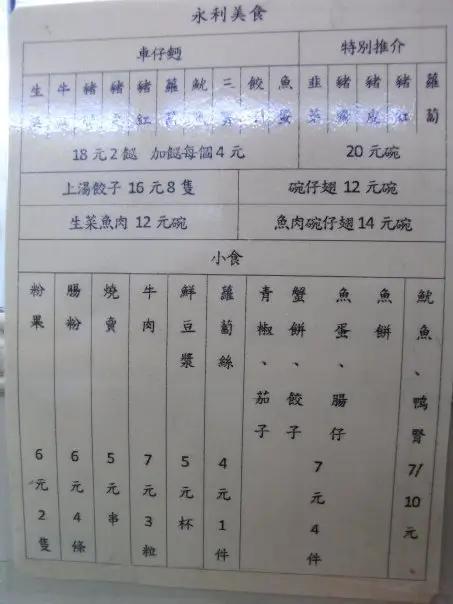 永利美食
車仔麵
特別推介
生菜
牛
豬
豬
豬紅
蘿蔔
魷
三
餃
魚蛋
韭菜
豬
豬皮
豬紅
蘿蔔
18元2餸 加餸每個4元
20元碗
上湯餃子16元8隻
碗仔翅12元碗
生菜魚肉12元碗
魚肉碗仔翅14元碗
小食
粉果 6元2隻
腸粉 6元4條
燒賣 5元串
牛肉 7元3粒
鮮豆漿 5元杯
蘿蔔絲 4元1件
青椒、茄子
蟹餅、餃子
魚蛋、腸仔
魚餅
7元4件
魷魚、鴨腎 7/10元